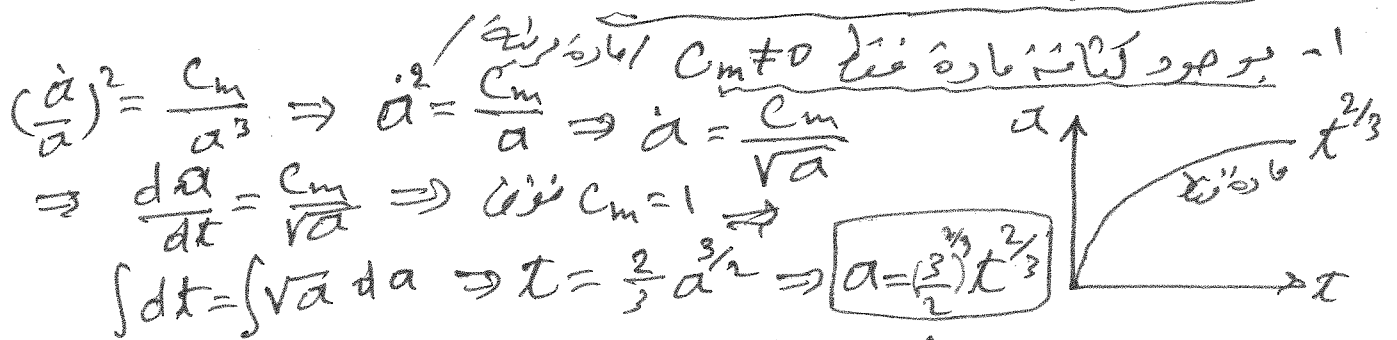 1- بوجود كثافة مادة فقط C_m ≠ 0 / مادة مرئية /
(ȧ/a)² = C_m/a³ ⇒ ȧ² = C_m/a ⇒ ȧ = C_m/√a
⇒ da/dt = C_m/√a ⇒ C_m = 1 ⇒
∫dt = ∫√a da ⇒ t = 2/3 a^{3/2} ⇒ a = (3/2)^{2/3} t^{2/3}
a
t^{2/3}
مادة فقط
t